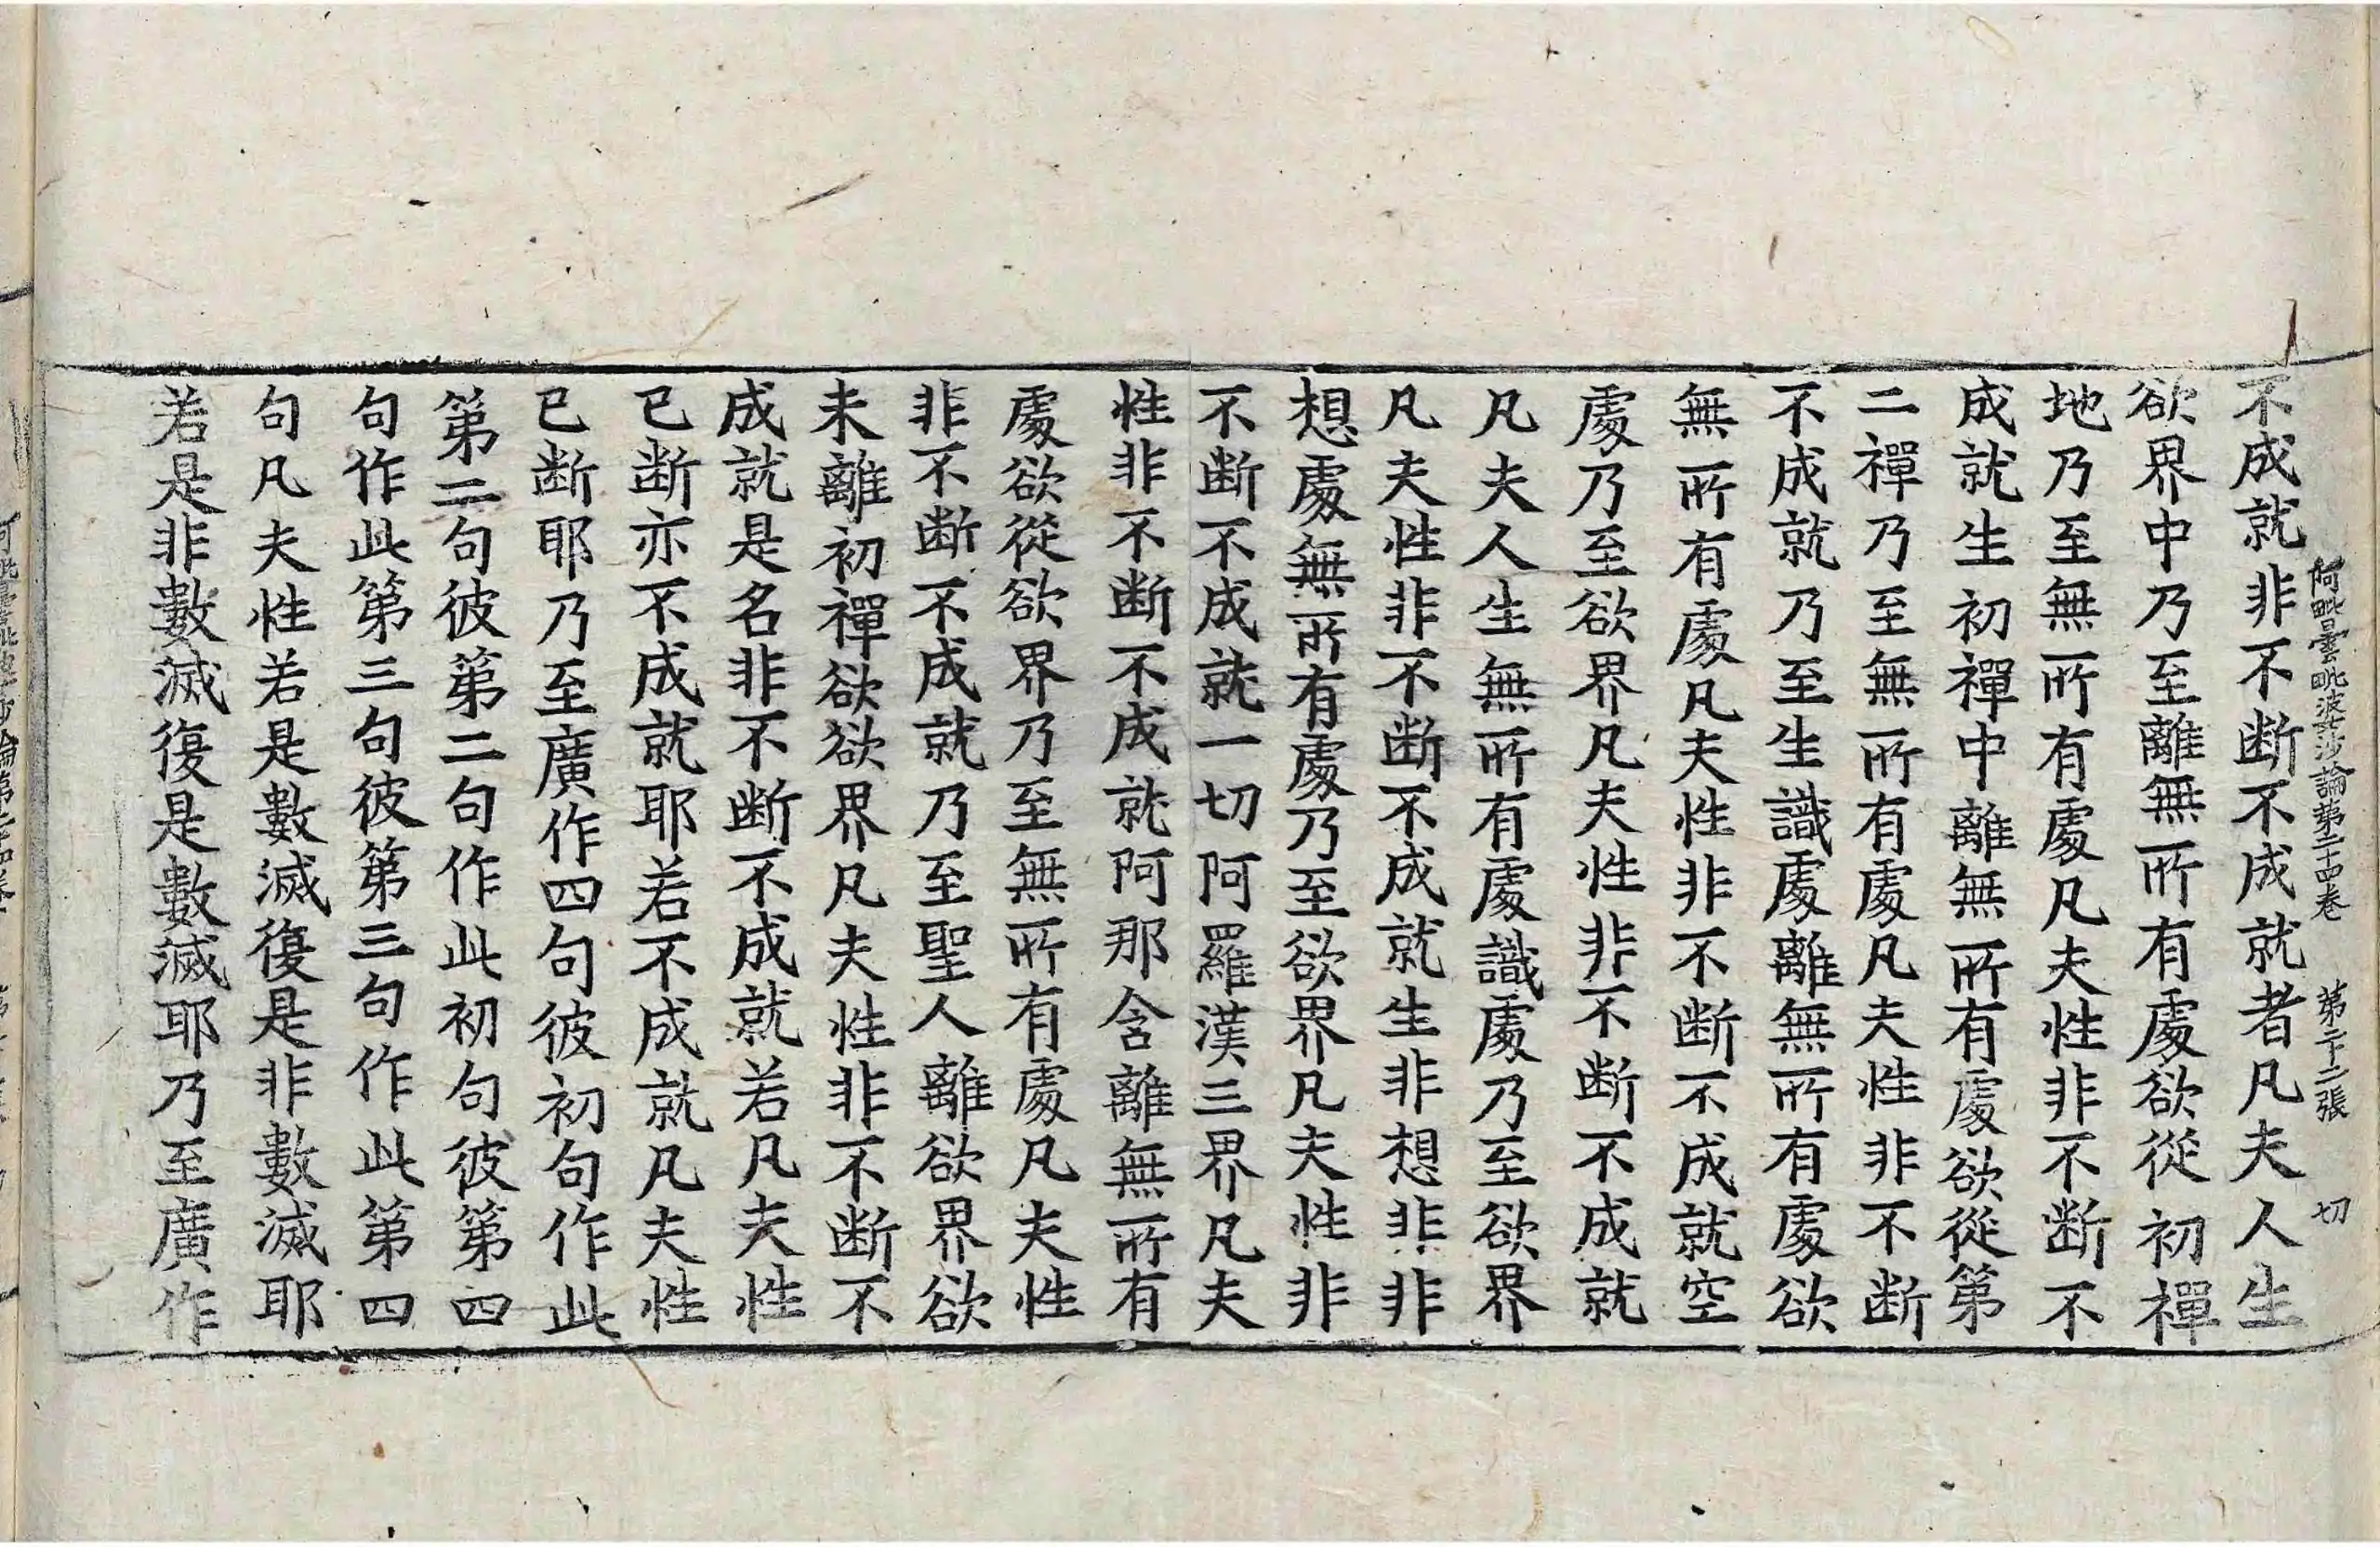 阿毗曇毗婆沙論第二十四卷 第二十二張 切
不成就非不断不成就者凡夫人生
欲界中乃至離無所有處欲從初禪
地乃至無所有處凡夫性非不断不
成就生初禪中離無所有處欲從第
二禪乃至無所有處凡夫性非不断
不成就乃至生識處離無所有處欲
無所有處凡夫性非不断不成就空
處乃至欲界凡夫性非不断不成就
凡夫人生無所有處識處乃至欲界
凡夫性非不断不成就生非想非非
想處無所有處乃至欲界凡夫性非
不断不成就一切阿羅漢三界凡夫
性非不断不成就阿那含離無所有
處欲從欲界乃至無所有處凡夫性
非不断不成就乃至聖人離欲界欲
未離初禪欲欲界凡夫性非不断不
成就是名非不断不成就若凡夫性
已断亦不成就耶若不成就凡夫性
已断耶乃至廣作四句彼初句作此
第二句彼第二句作此初句彼第四
句作此第三句彼第三句作此第四
句凡夫性若是數滅復是非數滅耶
若是非數滅復是數滅耶乃至廣作